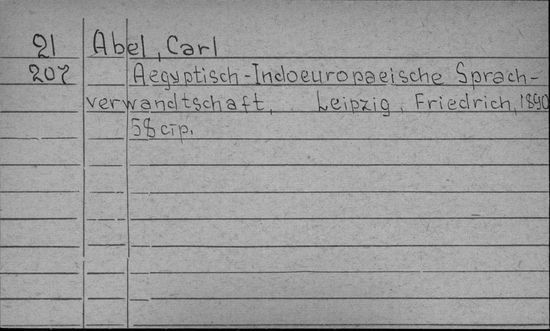 21 Abel, Carl
207 Aegyptisch-Indoeuropaeische Sprach-
verwandtschaft. Leipzig, Friedrich, 1890
58 стр.